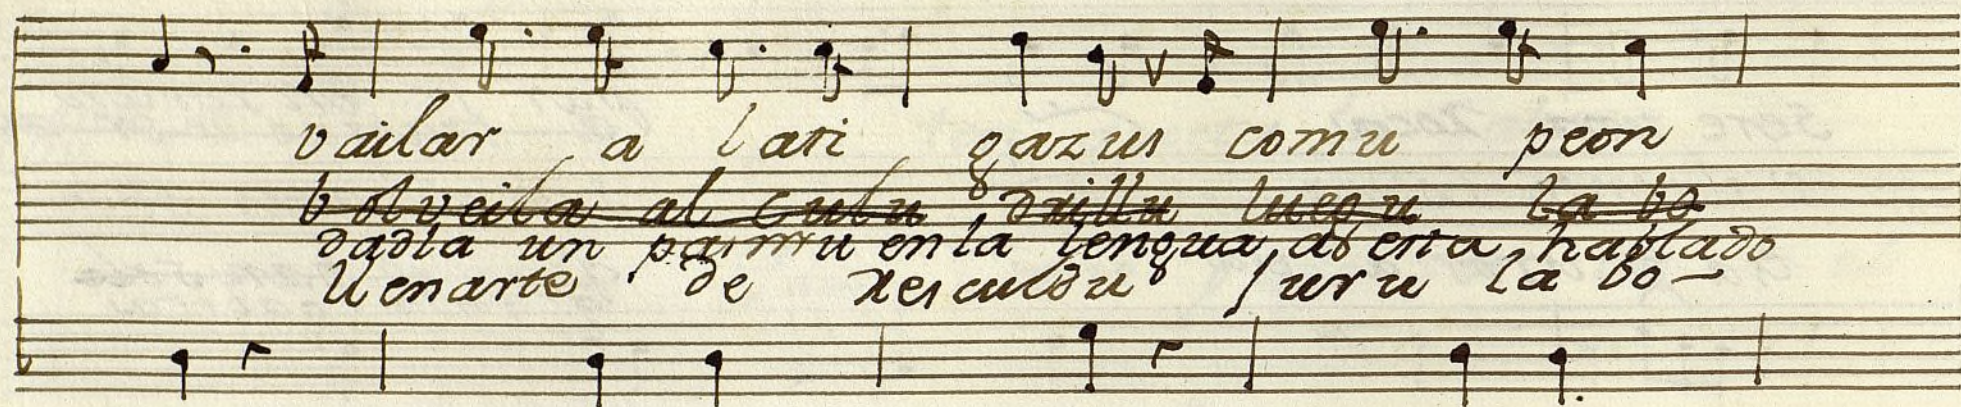 vailar a lati gazus comu peon
bolveila al culu drillu luegu la bo
dadla un palmu en la lengua ab esta hablado
llenarte de rescu furu la bo-